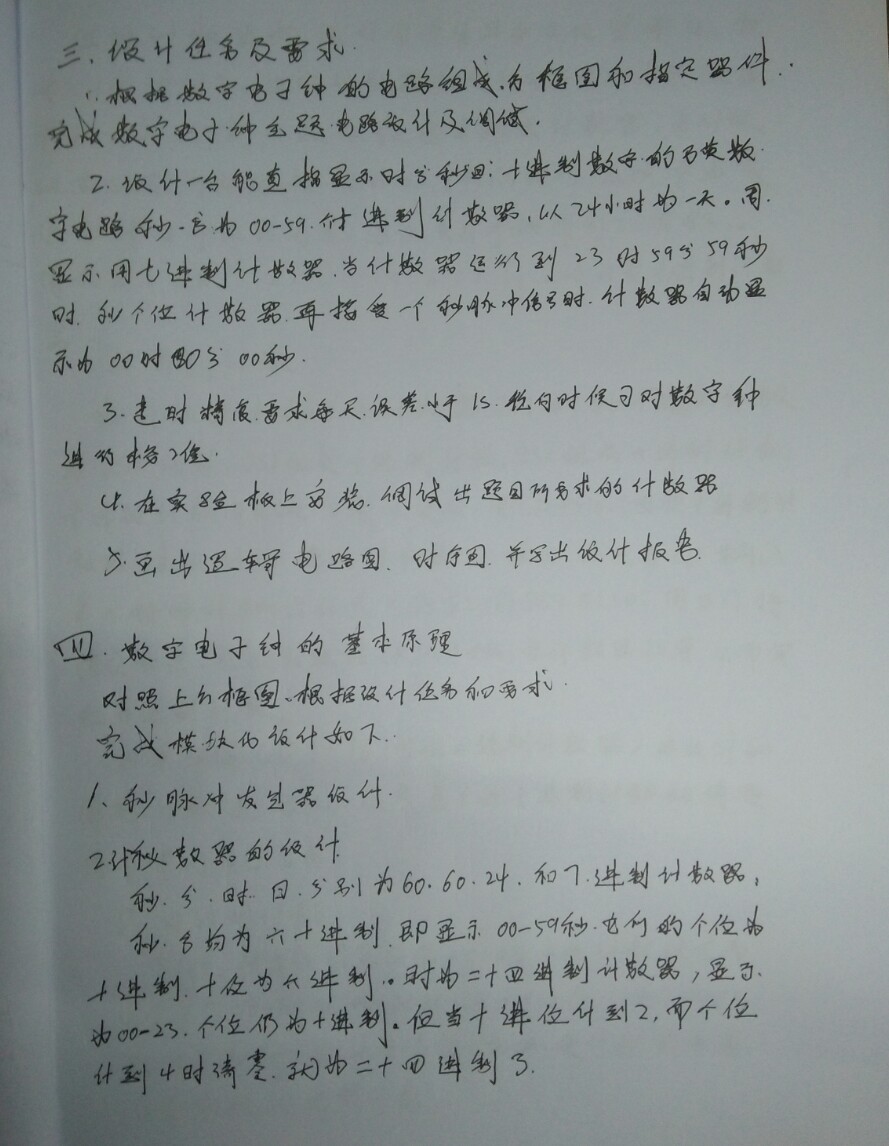 三、设计任务及要求.
1. 根据数字电子钟的电路组成方框图和指定器件.
完成数字电子钟主题电路设计及调试.
2. 设计一台能直接显示时分秒日:十进制数字的石英数
字电路 秒.分为 00-59. 进制计数器, 以24小时为一天。周
显示用七进制计数器. 当计数器运行到 23时59分59秒
时. 秒个位计数器再接受一个秒脉冲信号时. 计数器自动显
示为 00时00分 00秒.
3. 走时精度要求每天误差小于1S. 任何时候可对数字钟
进行校准.
4. 在实验板上安装. 调试出题目所要求的计数器
5. 画出逻辑电路图. 时序图. 并写出设计报告.
四. 数字电子钟的基本原理
对照上方框图. 根据设计任务和要求.
完成模块的设计如下.
1、秒脉冲发生器设计.
2.计秒数器的设计.
秒. 分. 时. 日. 分别为60. 60. 24. 和7.进制计数器,
秒. 分均为六十进制. 即显示 00-59秒. 它们的个位为
十进制. 十位为六进制. 时为二十四进制计数器, 显示
为00-23. 个位仍为十进制. 但当十进位计到2, 而个位
计到4时清零. 就为二十四进制了.